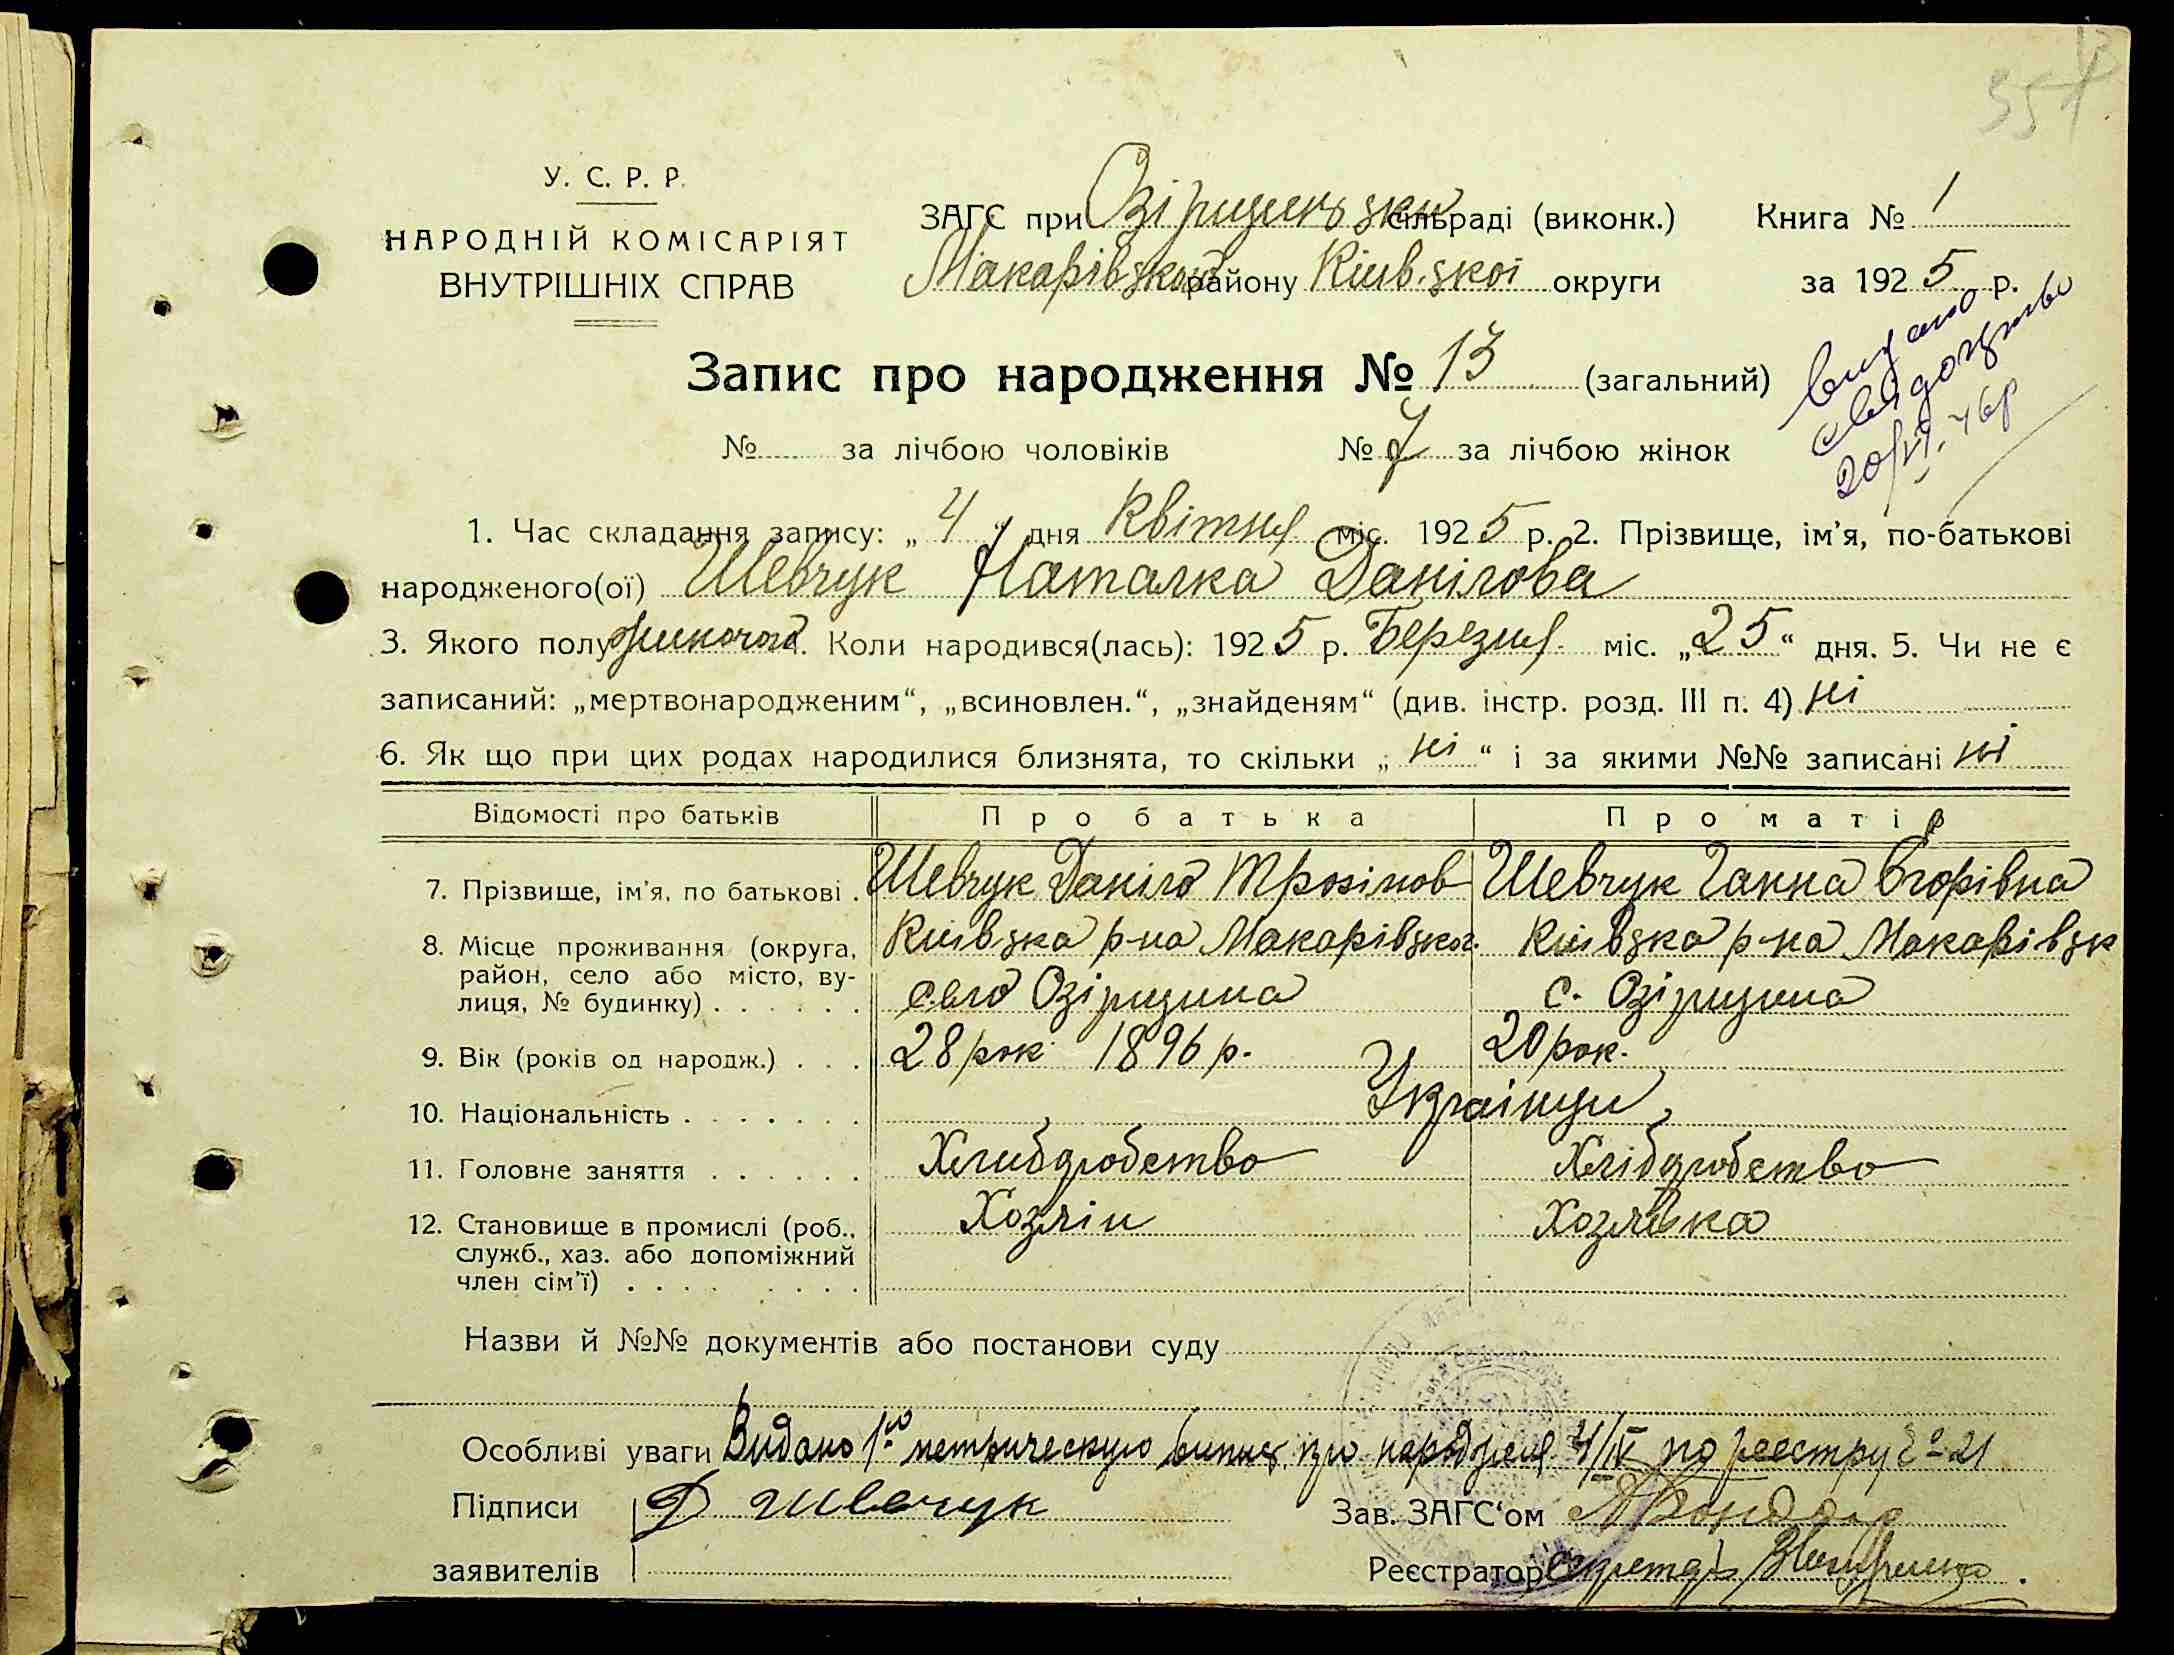 У. С. Р. Р.
НАРОДНІЙ КОМІСАРІЯТ
ВНУТРІШНІХ СПРАВ
ЗАГС при Озірщинській сільраді (виконк.) Книга № 1
Макарівської району Київ.ської округи за 1925 р.
видано
свидоцтво
20/VI. 46р
Запис про народження № 13 (загальний)
№ за лічбою чоловіків № 7 за лічбою жінок
1. Час складання запису: „4“ дня Квітня міс. 1925 р. 2. Прізвище, ім'я, по-батькові
народженого(ої) Шевчук Наталка Данілова
3. Якого полу жиночого. Коли народився(лась): 1925 р. Березня міс. „25“ дня. 5. Чи не є
записаний: „мертвонародженим“, „всиновлен.“, „знайденям“ (див. інстр. розд. III п. 4) ні
6. Як що при цих родах народилися близнята, то скільки „ні“ і за якими №№ записані ні
Відомості про батьків Про батька Про матір
7. Прізвище, ім'я, по батькові . Шевчук Даніло Трохімов Шевчук Ганна Єгорівна
8. Місце проживання (округа, Київзка р-на Макарівзког. Київзка р-на Макарівзк
район, село або місто, ву- село Озірщина с. Озірщина
лиця, № будинку) . . . . . .
9. Вік (років од народж.) . . . 28 рок 1896 р. 20 рок.
10. Національність . . . . . . . Українци
11. Головне заняття . . . . . . Хлибдробство Хлібдробство
12. Становище в промислі (роб., Хозяін Хозяйка
служб., хаз. або допоміжний
член сім'ї) . . . . . . . .
Назви й №№ документів або постанови суду
Особливі уваги Видано 1-ю метрическую випис про народженя 4/IV по реестру № 21
Підписи Д Шевчук Зав. ЗАГС‘ом А Бондар
заявителів Реєстратор секретарь